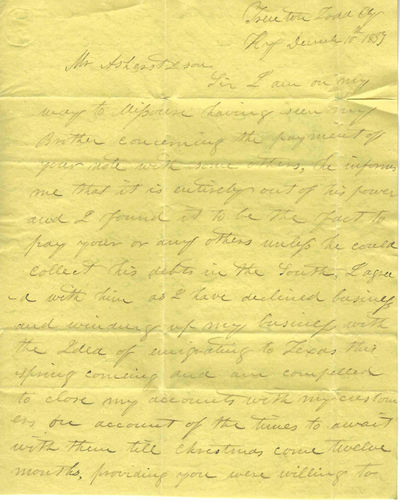 Trenton Todd Cty
Ky Decmb 10th 1839
Mr Asherst & son
Sir I am on my
way to dispose having seen my
Brother concerning the payment of
your note with some others, he informs
me that it is entirely out of his power
and I found it to be the fact to
pay your or any others unless he could
collect his debts in the South, I agree
d with him as I have declined business
and winding up my business with
the Idea of emigrating to Texas this
spring coming and am compelled
to close my accounts with my custom
ers on account of the times to await
with them till christmas come twelve
months, providing you were willing to